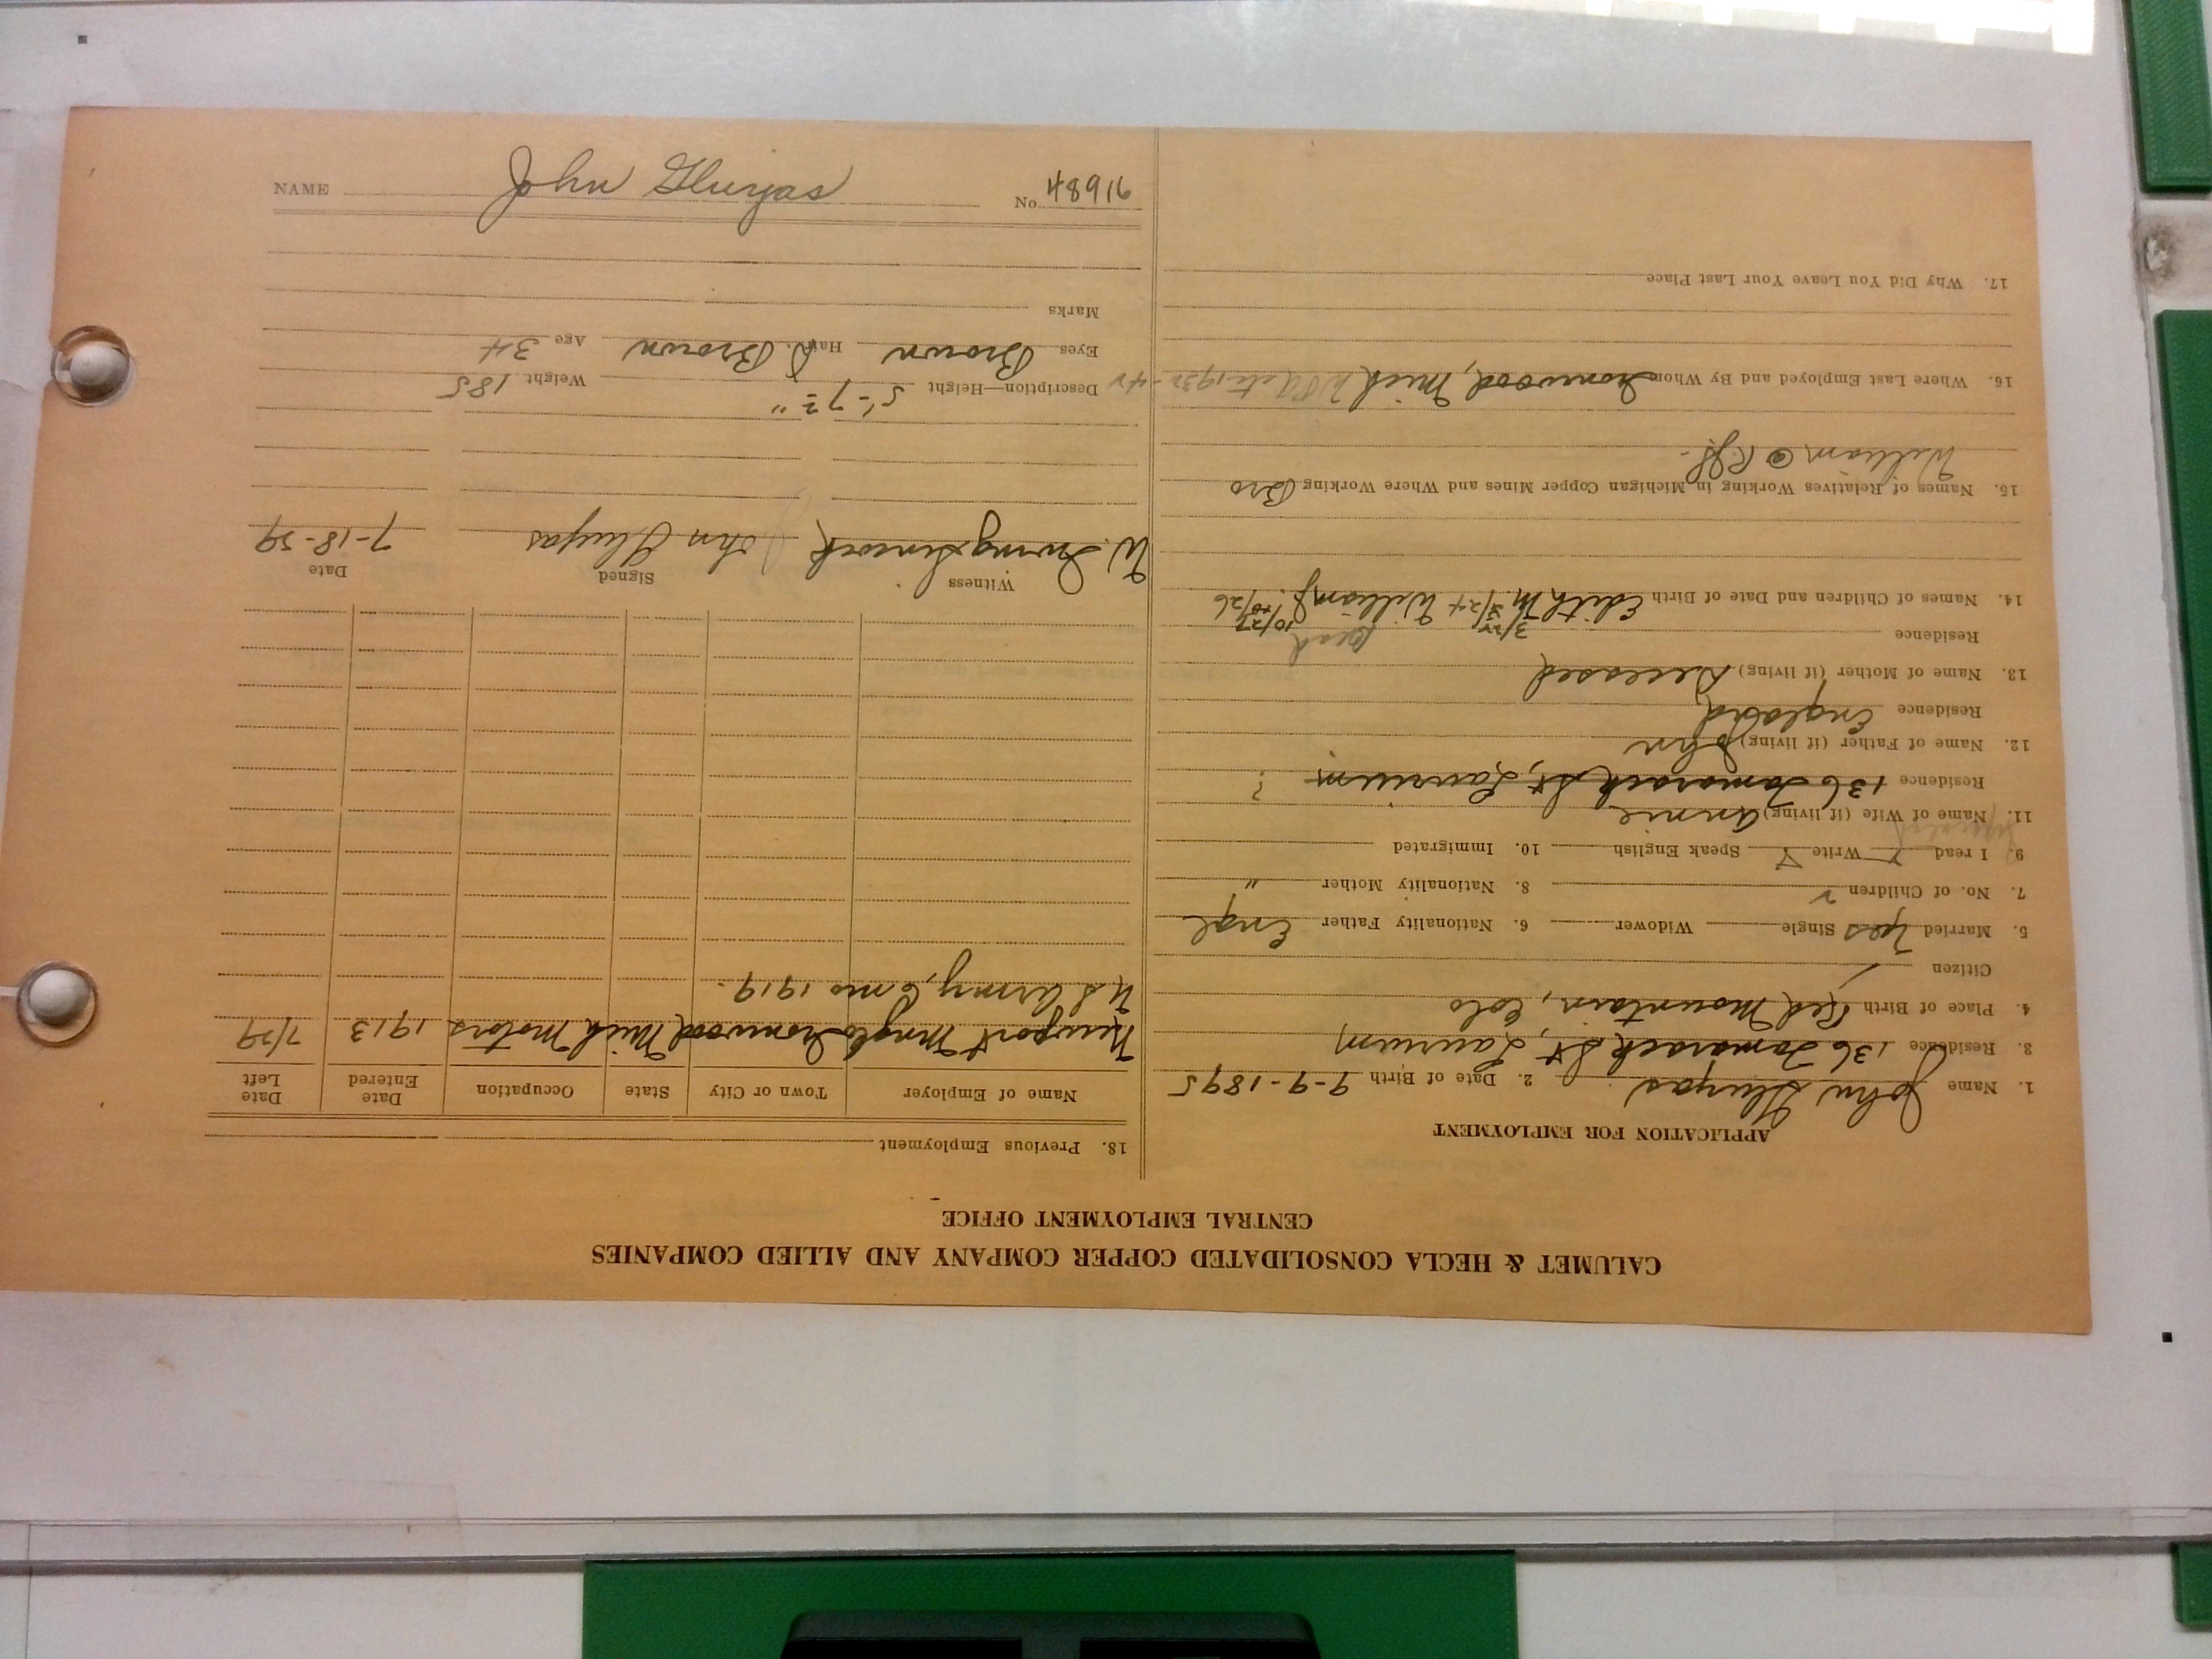 CALUMET & HECLA CONSOLIDATED COPPER COMPANY AND ALLIED COMPANIES
CENTRAL EMPLOYMENT OFFICE
APPLICATION FOR EMPLOYMENT
1. Name John Gluyas 2. Date of Birth 9-9-1895
3. Residence 136 Tamarack St, Laurium
4. Place of Birth Red Mountain, Colo
Citizen
5. Married Yes Single Widower 6. Nationality Father Engl
7. No. of Children 2 8. Nationality Mother "
9. I read Write Speak English 10. Immigrated
11. Name of Wife (if living) Annie
Residence 136 Tamarack St, Laurium ?
12. Name of Father (if living) John
Residence England
13. Name of Mother (if living) Deceased
Residence
Dead
14. Names of Children and Date of Birth Edith M. 3/24 William J. 10/26
15. Names of Relatives Working in Michigan Copper Mines and Where Working Bro
William @
16. Where Last Employed and By Whom Ironwood, Mich
17. Why Did You Leave Your Last Place
18. Previous Employment
Name of Employer Town or City State Occupation Date Entered Date Left
Newport Mng Co Ironwood Mich Motors 1913 7/29
U S Army, 6 mo 1919.
Witness Signed Date
W. Irving John Gluyas 7-18-
Description—Height 5'-7½" Weight 185
Eyes Brown Hair D. Brown Age 34
Marks
NAME John Gluyas No. 48916